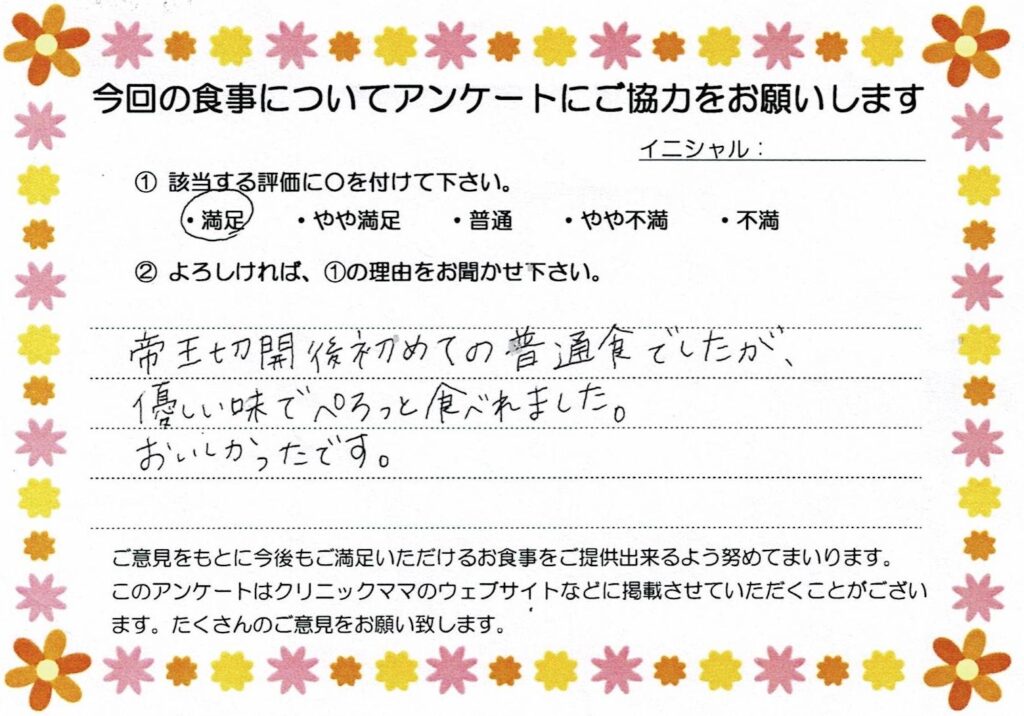 今回の食事についてアンケートにご協力をお願いします
イニシャル：
① 該当する評価に〇を付けて下さい。
・満足 ・やや満足 ・普通 ・やや不満 ・不満
② よろしければ、①の理由をお聞かせ下さい。
帝王切開後初めての普通食でしたが、
優しい味でぺろっと食べれました。
おいしかったです。
ご意見をもとに今後もご満足いただけるお食事をご提供出来るよう努めてまいります。
このアンケートはクリニックママのウェブサイトなどに掲載させていただくことがござい
ます。たくさんのご意見をお願い致します。